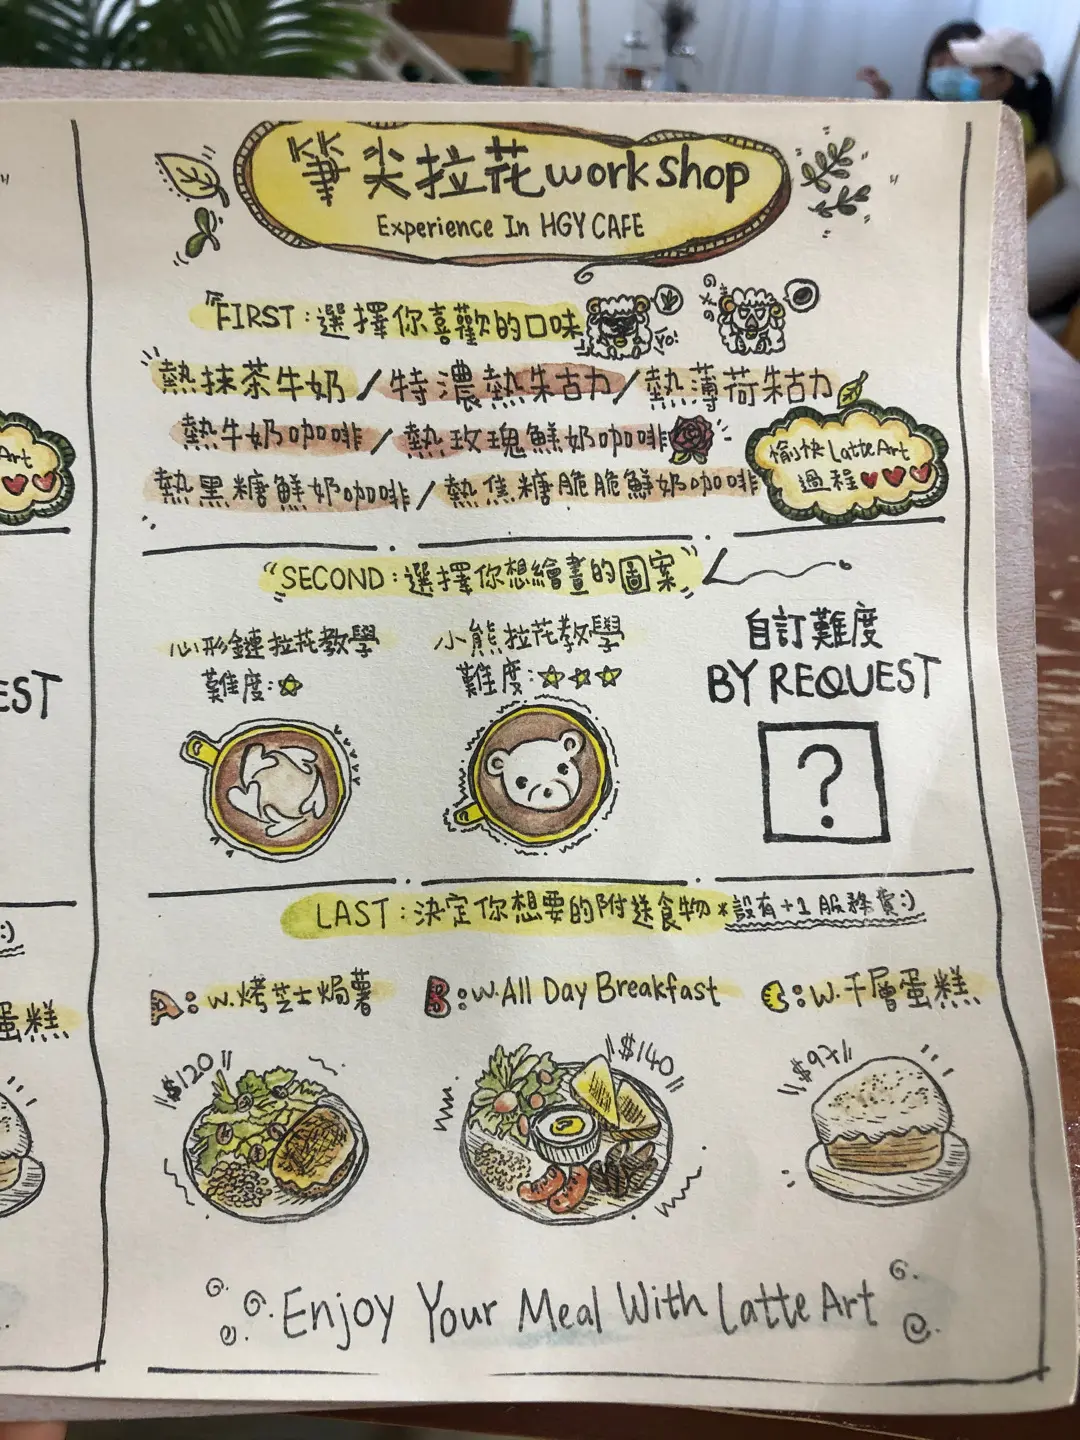 筆尖拉花workshop
Experience In HGY CAFE
FIRST:選擇你喜歡的口味
Yo!
熱抹茶牛奶/特濃熱朱古力/熱薄荷朱古力
熱牛奶咖啡/熱玫瑰鮮奶咖啡
熱黑糖鮮奶咖啡/熱焦糖脆脆鮮奶咖啡
愉快Latte Art
過程
Art
"SECOND:選擇你想繪畫的圖案"
心形鏈拉花教學
難度:☆
小熊拉花教學
難度:☆☆☆
自訂難度
BY REQUEST
?
EST
LAST:決定你想要的附送食物*設有+1服務費:)
:)
A:w.烤芝士焗薯
B:w.All Day Breakfast
C:w.千層蛋糕
蛋糕
$120
$140
Enjoy Your Meal With Latte Art